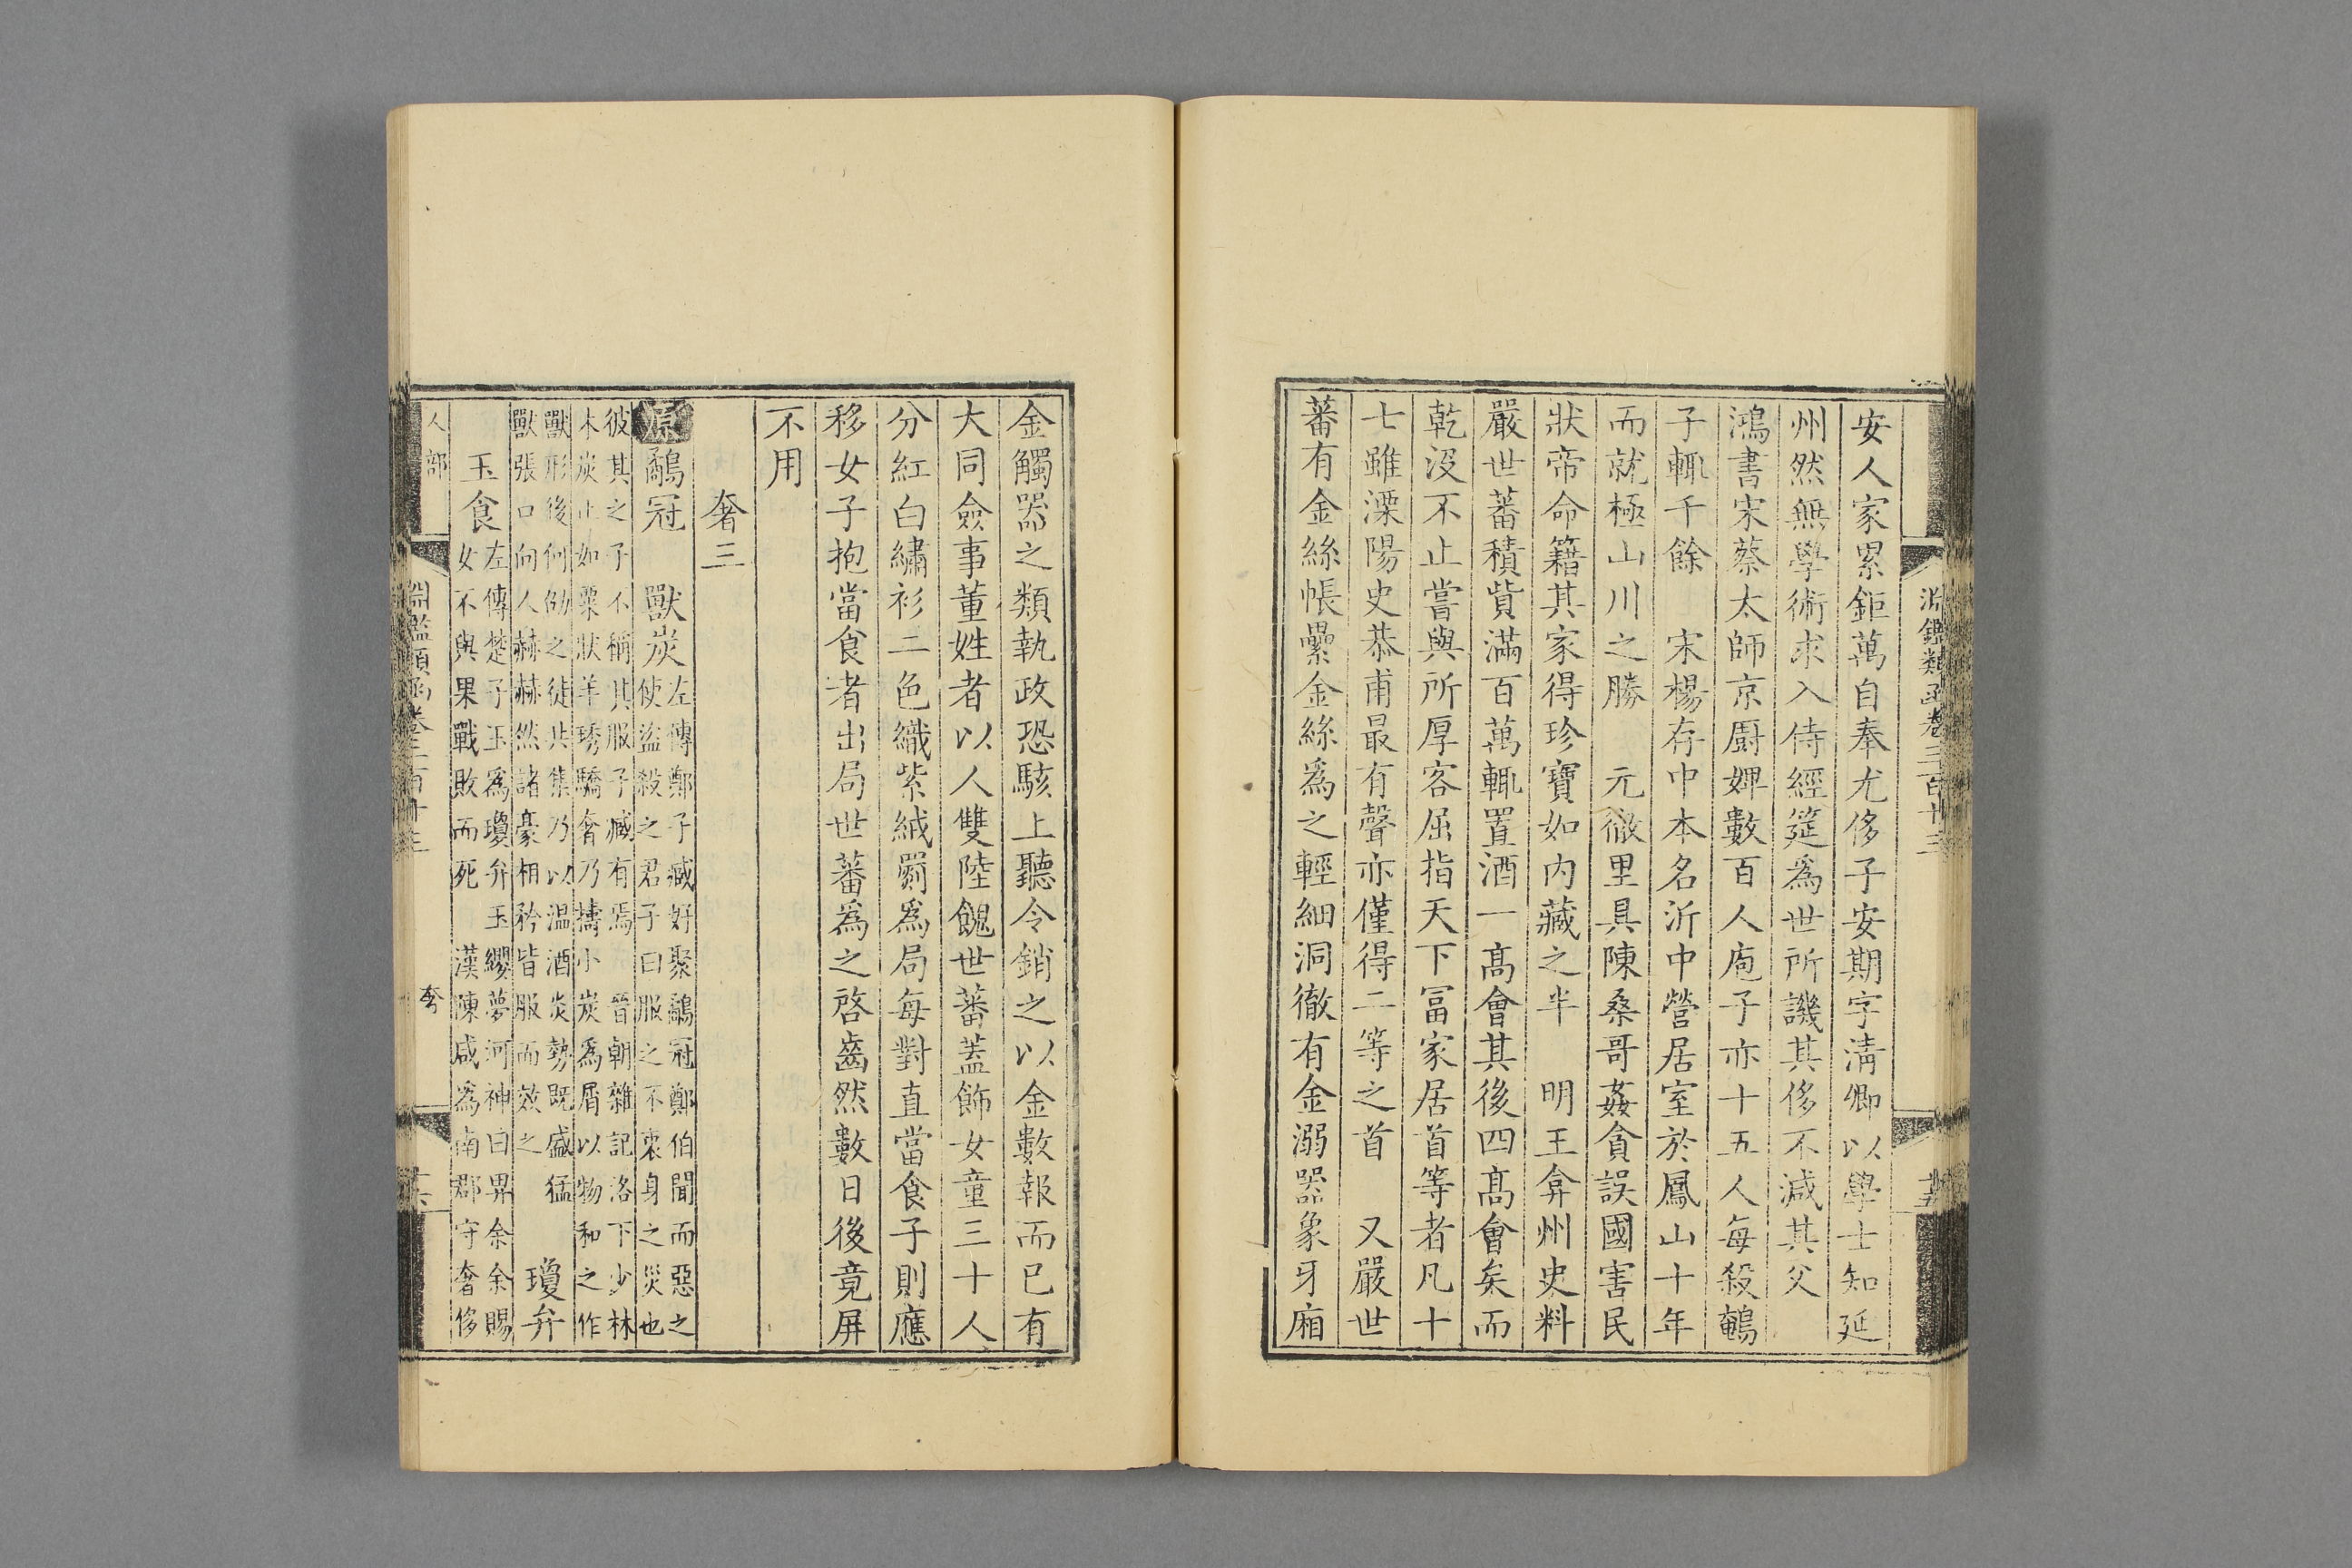 淵鑑類函卷三百十三
十五
安人家累鉅萬自奉尤侈子安期字淸卿以學士知延
州然無學術求入侍經筵爲世所譏其侈不減其父
鴻書宋蔡太師京廚婢數百人庖子亦十五人每殺鵪
子輒千餘　宋楊存中本名沂中營居室於鳳山十年
而就極山川之勝　元徹里具陳桑哥姦貪誤國害民
狀帝命籍其家得珍寶如内藏之半　明王弇州史料
嚴世蕃積貲滿百萬輒置酒一髙會其後四髙會矣而
乾没不止嘗與所厚客屈指天下冨家居首等者凡十
七雖溧陽史恭甫最有聲亦僅得二等之首　又嚴世
蕃有金絲帳纍金絲爲之輕細洞徹有金溺器象牙廂
金觸器之類執政恐駭上聽令銷之以金數報而已有
大同僉事董姓者以人雙陸餽世蕃蓋飾女童三十人
分紅白繡衫二色織紫絨罽爲局每對直當食子則應
移女子抱當食者出局世蕃爲之啓齒然數日後竟屏
不用
奢三
原鷸冠　獸炭左傳鄭子臧好聚鷸冠鄭伯聞而惡之
使盜殺之君子曰服之不衷身之災也
彼其之子不稱其服子臧有焉　晉朝雜記洛下少林
木炭止如粟狀羊琇驕奢乃擣小炭爲屑以物和之作
獸形後何劭之徒共集乃以温酒炎勢既盛猛
獸張口向人赫赫然諸豪相矜皆服而效之　瓊弁
玉食左傳楚子玉爲瓊弁玉纓夢河神曰畀余余賜
女不與果戰敗而死　漢陳咸爲南郡守奢侈
人部
淵鑑類函卷三百十三
奢
十六